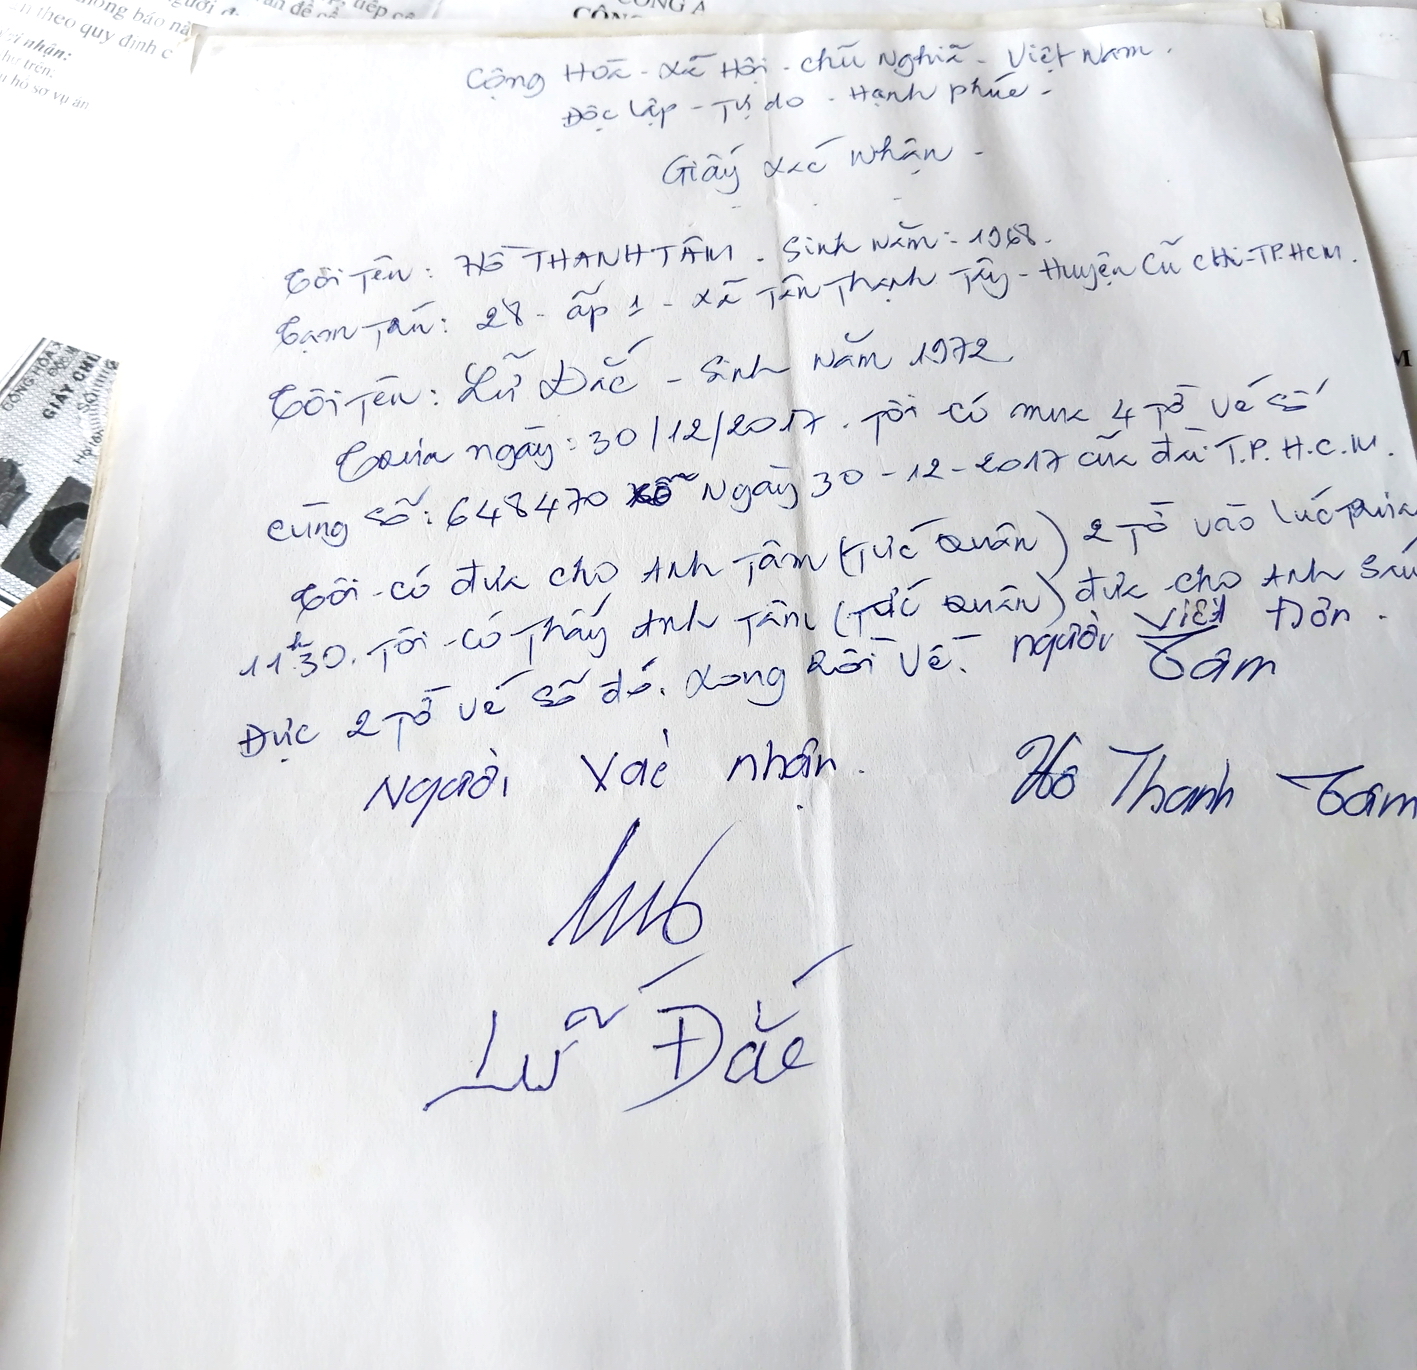 CÔNG A
hông báo nà
n theo quy định c
ơi nhận:
hư trên;
u hồ sơ vụ án
CỘNG HÒA X
GIẤY CH
Cộng Hoà - Xã Hội - chũ Nghiã - Việt Nam.
Độc lập - Tự do - Hạnh phúc -
Giấy xác nhận -
Tôi Tên: HỒ THANH TÂM. Sinh Năm: 1968.
Tạm Trú: 28 - ấp 1 - xã Tân Thạnh Tây - Huyện Cũ chi - TP.HCM.
Tôi Tên: Lữ Đắc - Sinh Năm 1972
Trưa ngày: 30/12/2017. Tôi có mua 4 Tờ Vé Số
cùng số: 648470 xổ Ngày 30-12-2017 của đài T.P.H.C.M.
Tôi có đưa cho Anh Tâm (Tức Quân) 2 Tờ vào lúc Trưa
11h30. Tôi có Thấy Anh Tâm (Tức Quân) đưa cho Anh Sáu
Đực 2 Tờ vé số đó. Xong Rồi Về. người Viết Đơn.
Tâm
Người Xác nhận. Hồ Thanh Tâm
Lữ Đắc